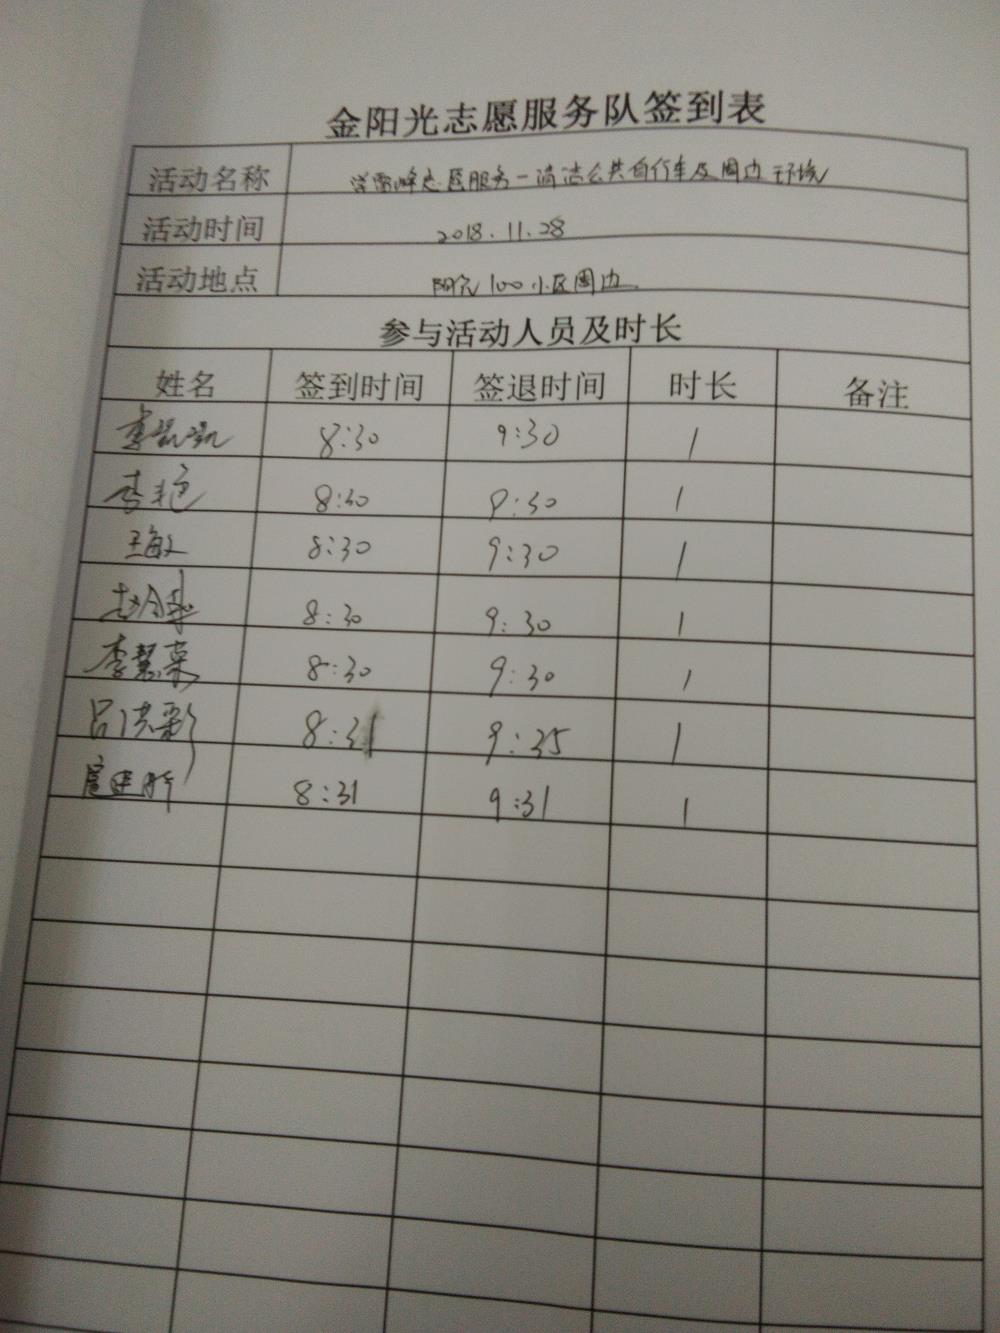 金阳光志愿服务队签到表
活动名称 学雷峰志愿服务-清洁公共自行车及周边环境
活动时间 2018.11.28
活动地点 阳光100小区周边
参与活动人员及时长
姓名 签到时间 签退时间 时长 备注
8:30 9:30 1
李艳 8:30 9:30 1
王敏 8:30 9:30 1
8:30 9:30 1
李慧荣 8:30 9:30 1
吕洪彩 8:31 9:35 1
8:31 9:31 1